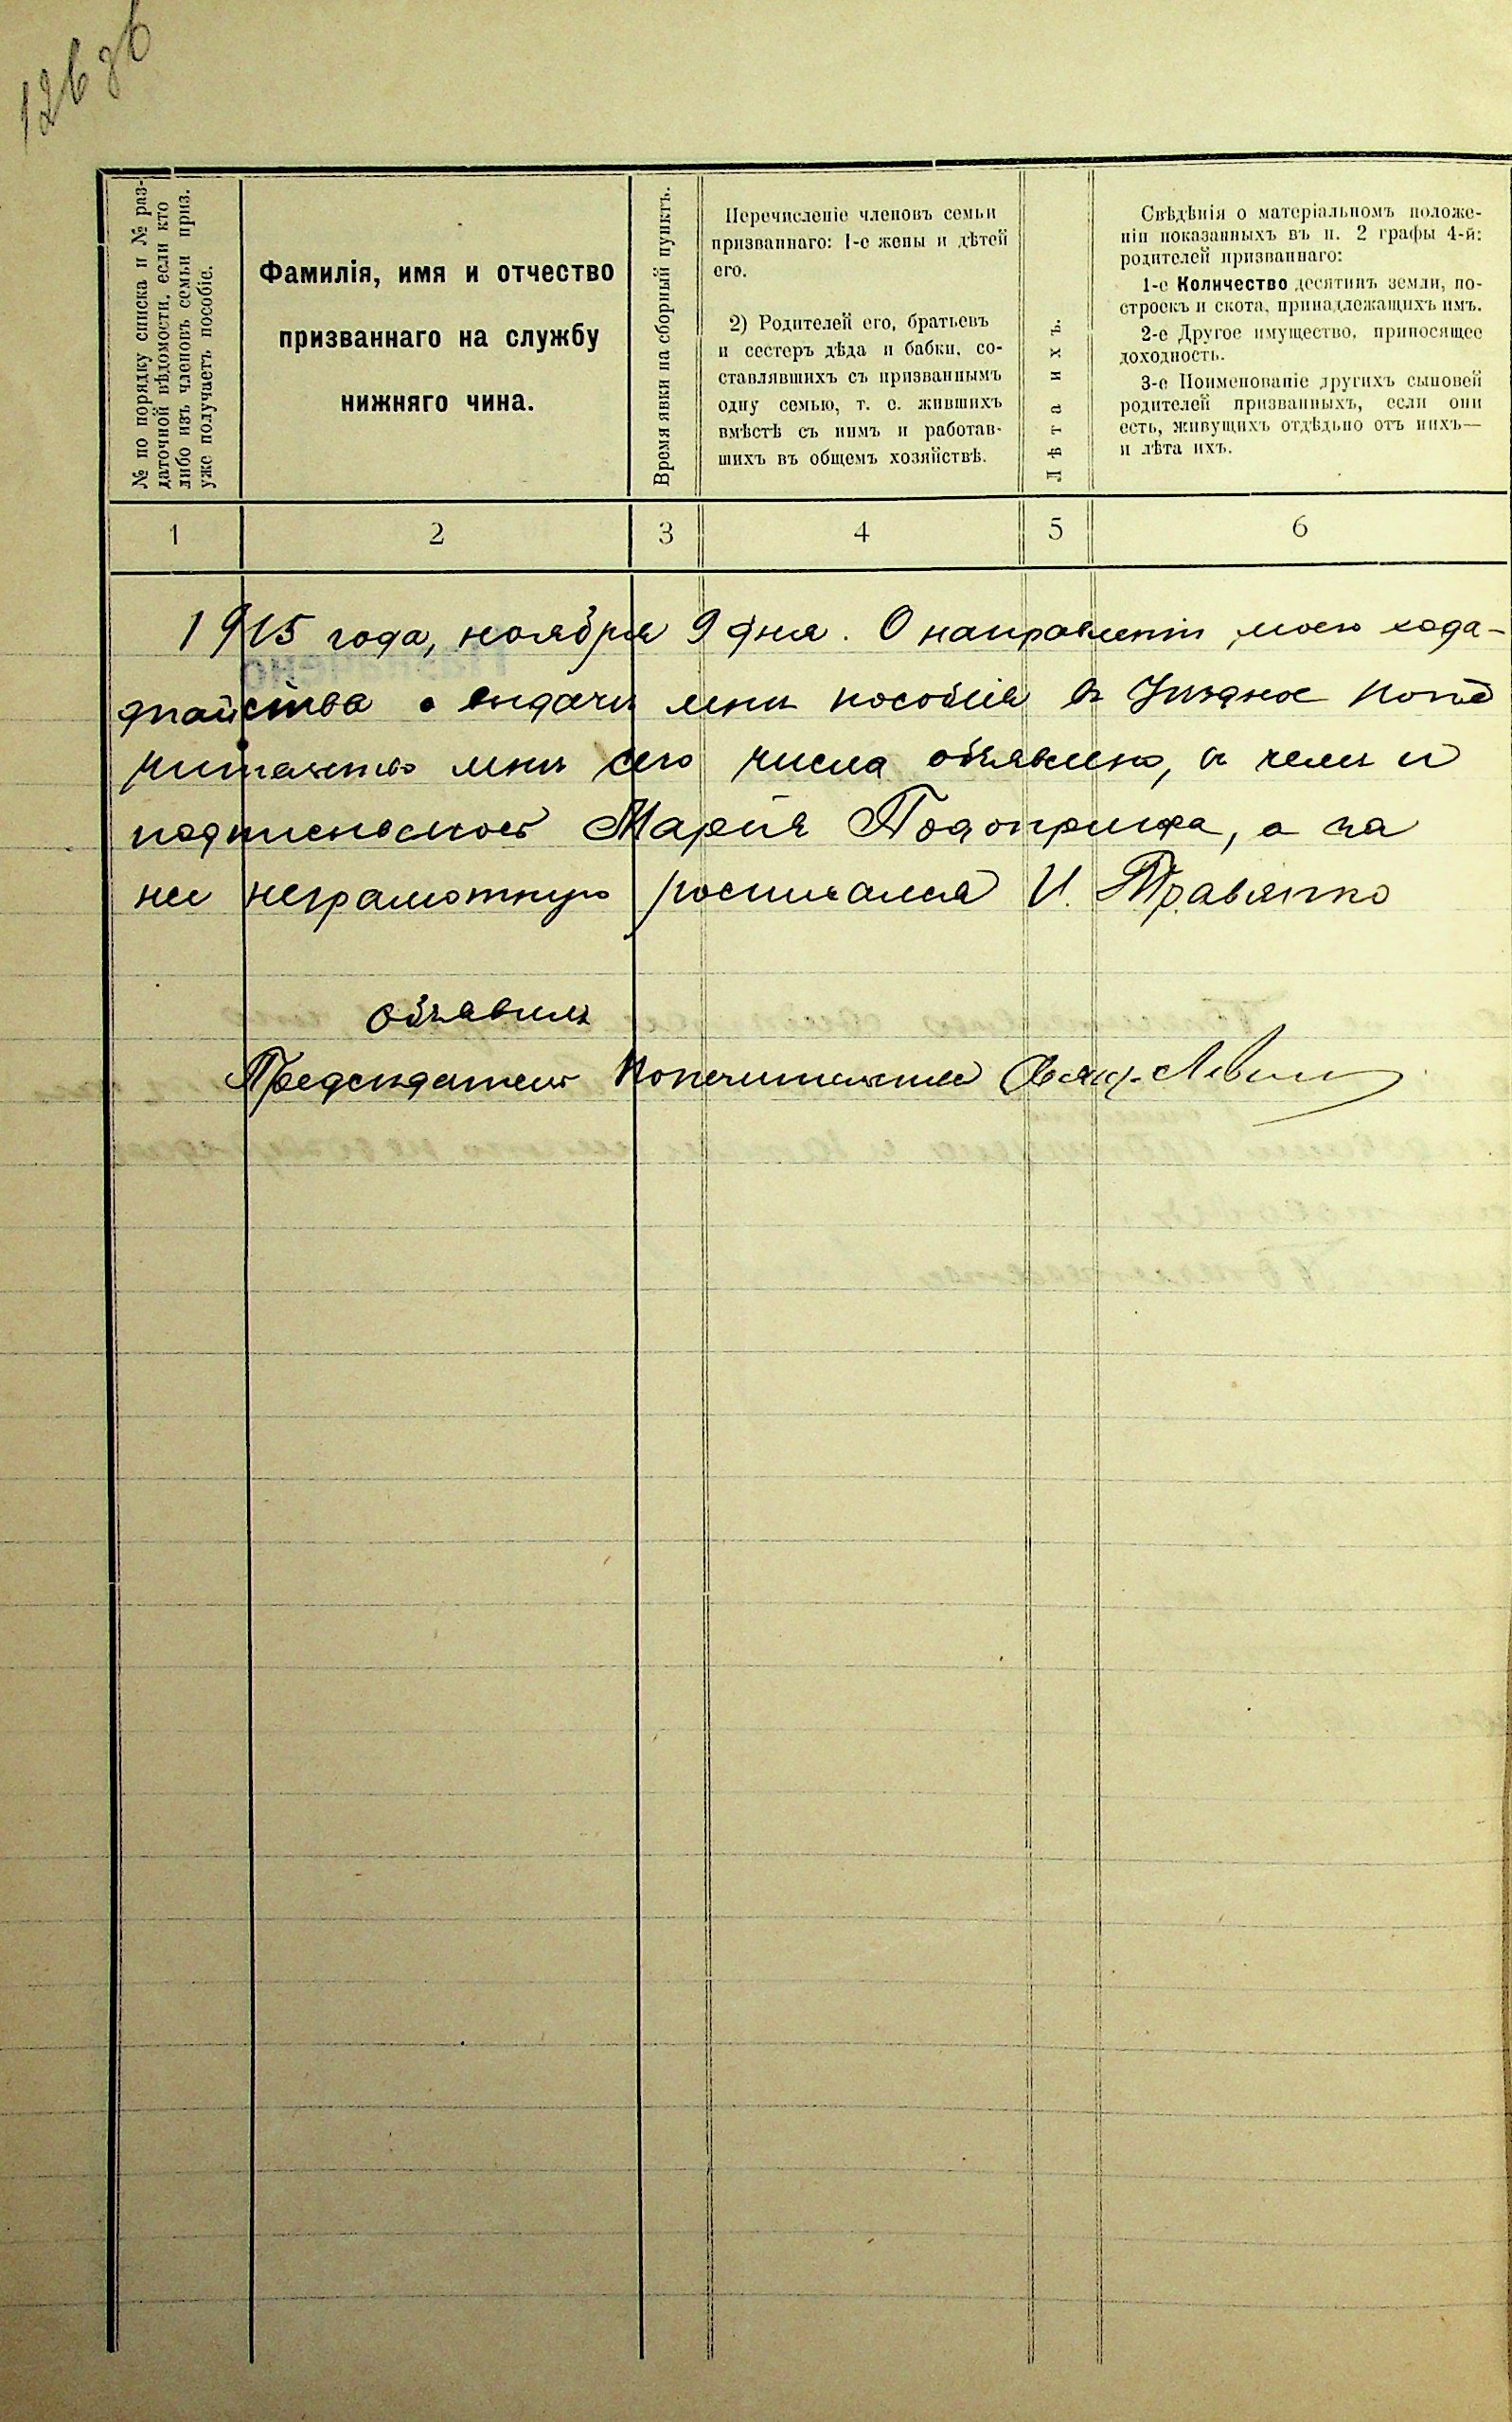 126 об
№ по порядку списка и № раз-
даточной вѣдомости, если кто
либо изъ членовъ семьи приз.
уже получаетъ пособіе.
Фамилія, имя и отчество
призваннаго на службу
нижняго чина.
Время явки на сборный пунктъ.
Перечисленіе членовъ семьи
призваннаго: 1-е жены и дѣтей
его.
2) Родителей его, братьевъ
и сестеръ дѣда и бабки, со-
ставлявшихъ съ призваннымъ
одну семью, т. е. жившихъ
вмѣстѣ съ нимъ и работав-
шихъ въ общемъ хозяйствѣ.
Лѣта ихъ.
Свѣдѣнія о матеріальномъ положе-
ніи показанныхъ въ п. 2 графы 4-й:
родителей призваннаго:
1-е Количество десятинъ земли, по-
строекъ и скота, принадлежащихъ имъ.
2-е Другое имущество, приносящее
доходность.
3-е Поименованіе другихъ сыновей
родителей призванныхъ, если они
есть, живущихъ отдѣльно отъ нихъ—
и лѣта ихъ.
1 2 3 4 5 6
1915 года, ноября 9 дня. О направленіи моего хода-
тайства о выдачѣ мнѣ пособія въ Уѣздное Попе
чительство мнѣ сего числа объявлено, въ чемъ и
подписываюсь Марія Подоприга, а за
нее неграмотную росписался И. Травянко
Объявилъ
Предсѣдатель Попечительства Свящ.